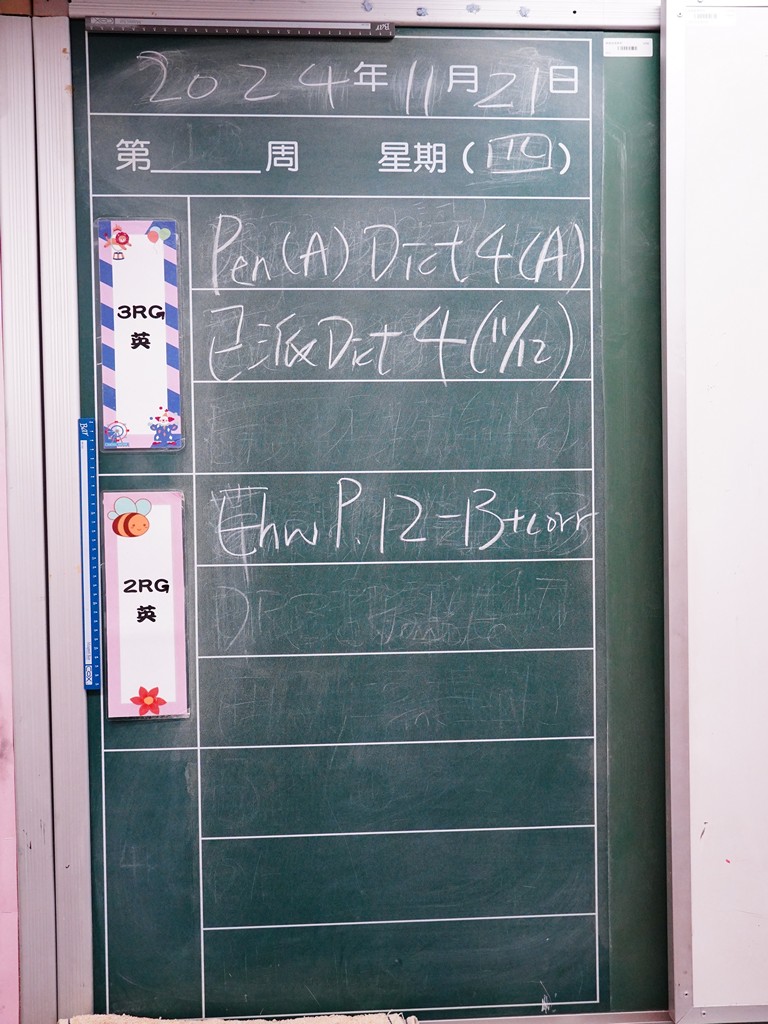 2024年11月21日
第______周 星期(四)
3RG
英
Pen(A) Dict 4(A)
已派Dict 4(11/12)
2RG
英
Ehw P.12-13+corr